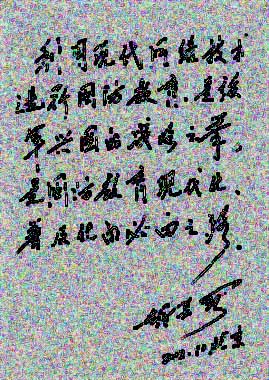 利用现代网络技术
进行国防教育,是强
军兴国的战略之举。
是国防教育现代化、
普及化的必由之路。
北京